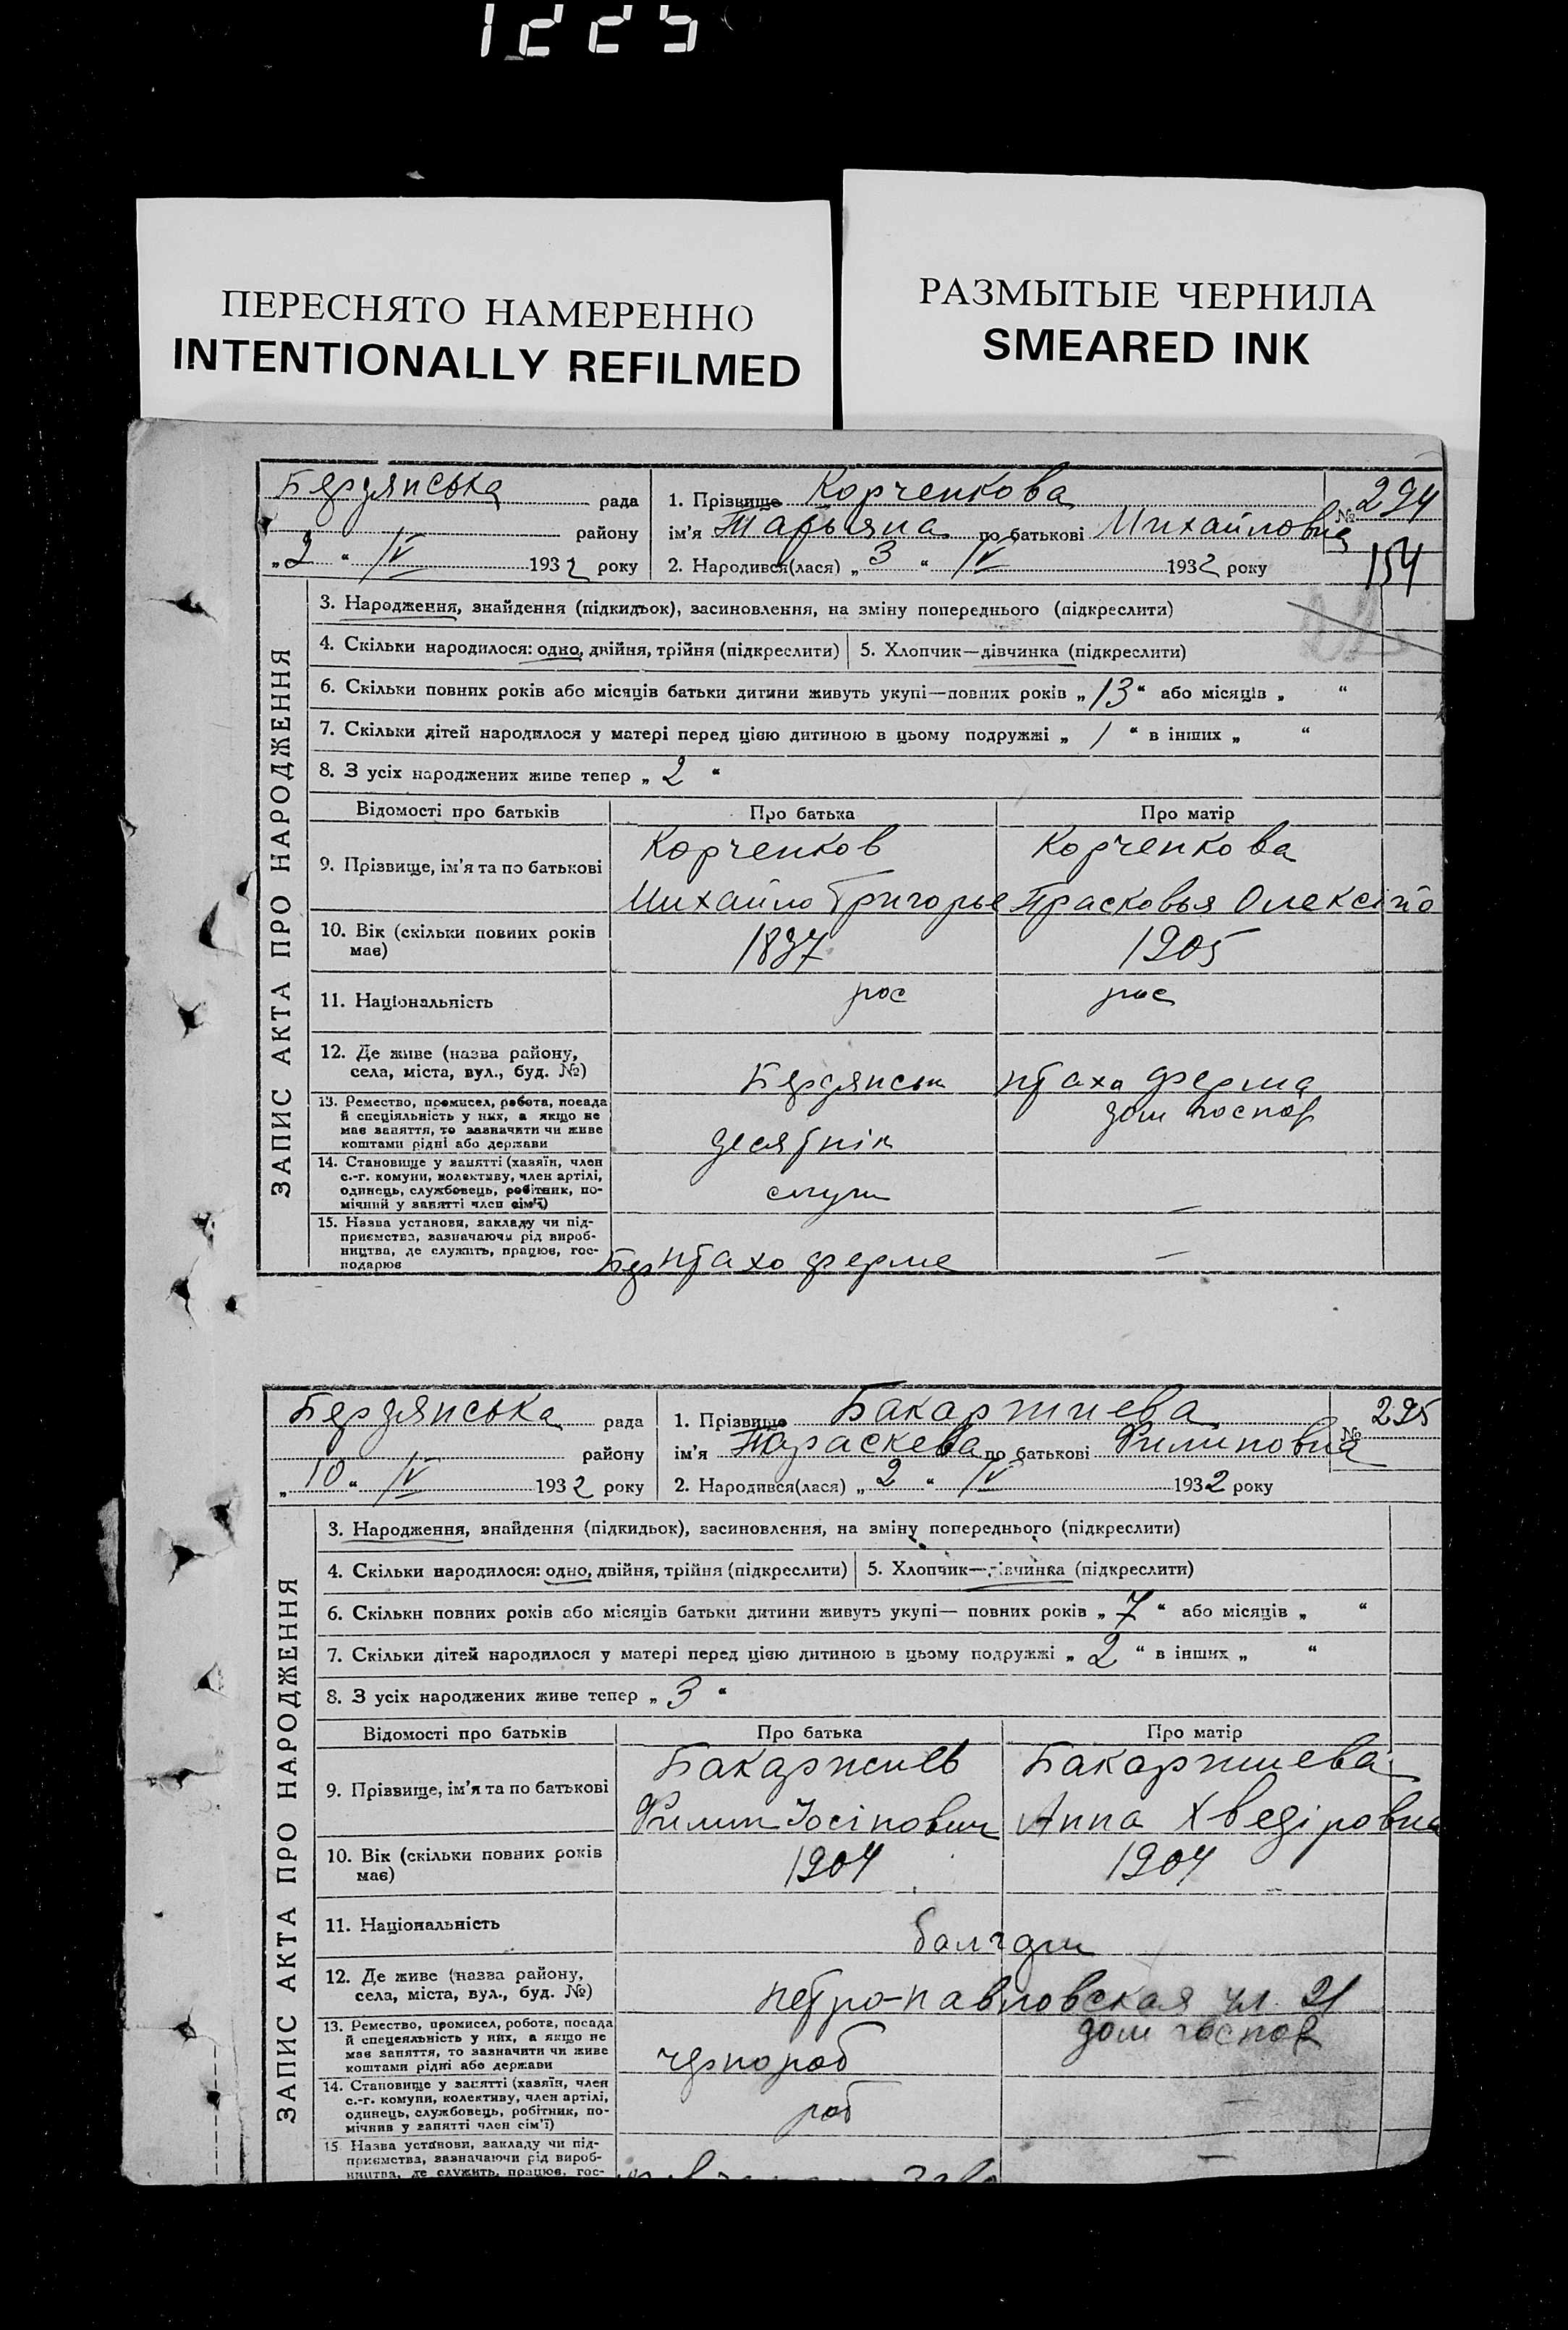 1225
ПЕРЕСНЯТО НАМЕРЕННО
INTENTIONALLY REFILMED
РАЗМЫТЫЕ ЧЕРНИЛА
SMEARED INK
Бердянська рада
району
„ “ IV 1932 року
1. Прізвище Корченкова
ім'я Татьяна по батькові Михайловна
2. Народився(лася) „3“ IV 1932 року
№ 294
154
ЗАПИС АКТА ПРО НАРОДЖЕННЯ
3. Народження, знайдення (підкидьок), засиновлення, на зміну попереднього (підкреслити)
4. Скільки народилося: одно, двійня, трійня (підкреслити) 5. Хлопчик—дівчинка (підкреслити)
6. Скільки повних років або місяців батьки дитини живуть укупі—повних років „13“ або місяців „ “
7. Скільки дітей народилося у матері перед цією дитиною в цьому подружжі „1“ в інших „ “
8. З усіх народжених живе тепер „2“
Відомості про батьків Про батька Про матір
9. Прізвище, ім'я та по батькові
Корченков Корченкова
Михайло Григорье Прасковья Олексійо
10. Вік (скільки повних років має)
1897 1905
11. Національність рос рос
12. Де живе (назва району,
села, міста, вул., буд. №)
Бердянськ птахо ферма
13. Ремество, промисел, робота, посада
й спеціяльність у них, а якщо не
має заняття, то зазначити чи живе
коштами рідні або держави
десятнік дом господ
14. Становище у занятті (хазяїн, член
с.-г. комуни, колективу, член артілі,
одинець, службовець, робітник, по-
мічний у занятті член сім'ї)
служ —
15. Назва установи, закладу чи під-
приємства, зазначаючи рід вироб-
ництва, де служить, працює, гос-
подарює
Бер птахо ферме —
Бердянська рада
району
„10“ IV 1932 року
1. Прізвище Бакаржиева
ім'я Параскева по батькові Филиповна
2. Народився(лася) „2“ IV 1932 року
№ 295
ЗАПИС АКТА ПРО НАРОДЖЕННЯ
3. Народження, знайдення (підкидьок), засиновлення, на зміну попереднього (підкреслити)
4. Скільки народилося: одно, двійня, трійня (підкреслити) 5. Хлопчик—дівчинка (підкреслити)
6. Скільки повних років або місяців батьки дитини живуть укупі— повних років „7“ або місяців „ “
7. Скільки дітей народилося у матері перед цією дитиною в цьому подружжі „2“ в інших „ “
8. З усіх народжених живе тепер „3“
Відомості про батьків Про батька Про матір
9. Прізвище, ім'я та по батькові
Бакаржиев Бакаржиева
Филип Іосіпович Анна Хведіровна
10. Вік (скільки повних років має)
1904 1904
11. Національність болгари
12. Де живе (назва району,
села, міста, вул., буд. №)
петро-павловская ул 21
13. Ремество, промисел, робота, посада
й спецеяльність у них, а якщо не
має заняття, то зазначити чи живе
коштами рідні або держави
чернороб дом господ
14. Становище у занятті (хазяїн, член
с.-г. комуни, колективу, член артілі,
одинець, службовець, робітник, по-
мічнив у занятті член сім'ї)
роб —
15 Назва установи, закладу чи під-
приємства, зазначаючи рід вироб-
ництва, де служить, працює, гос-
—